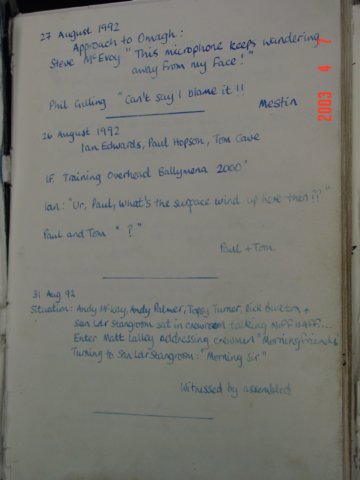 27 August 1992
Approach to Omagh:
Steve McEvoy "This microphone keeps wandering
away from my face!"
Phil Gilling "Can't say I blame it!!
Mestin
26 August 1992
Ian Edwards, Paul Hopson, Tom Cave
IF Training Overhead Ballymena 2000'
Ian: "Ur, Paul, what's the surface wind up here then??"
Paul and Tom "?"
Paul + Tom
31 Aug 92
Situation: Andy McKay, Andy Palmer, Topsy Turner, Dick Buxton +
Sqn Ldr Stangroom sat in crewroom talking NIFFNAFF...
Enter Matt Lalley addressing crewmen "Morning friends
Turning to Sqn Ldr Stangroom: "Morning Sir"
Witnessed by assembled
2003 4 7